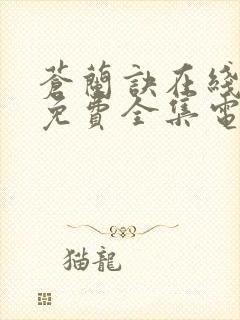 蒼蘭訣在綫
免費全集電
猫龍